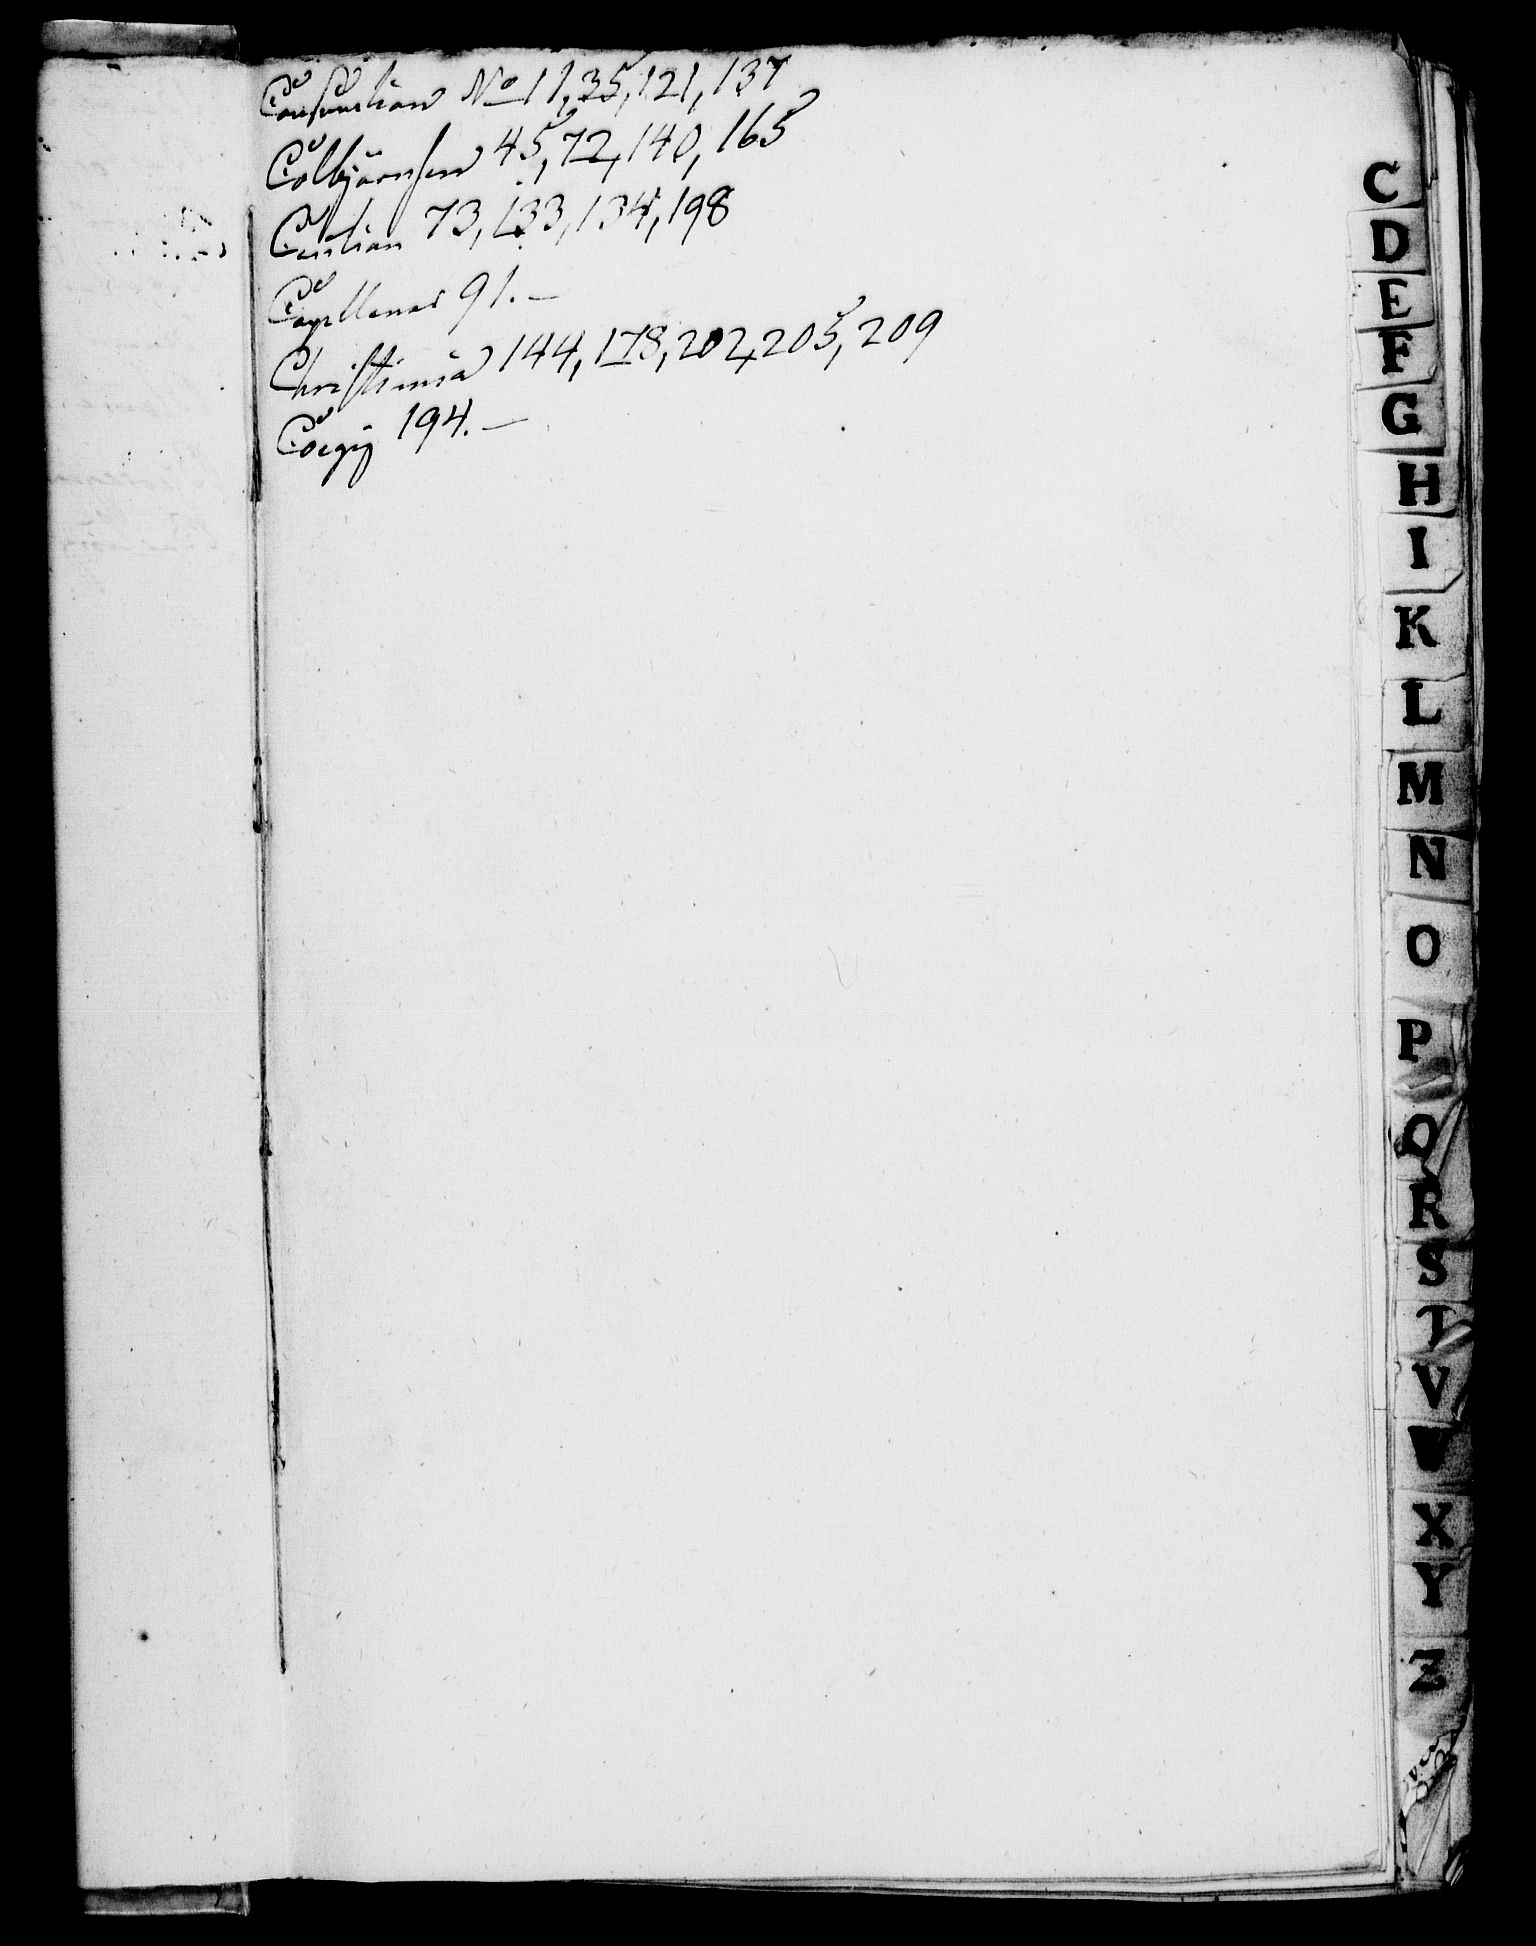 No 11, 35, 121, 137
Colbjörnsen 45, 72, 140, 165
73, 133, 134, 198
91. —
Christiania 144, 178, 202, 205, 209
194. —
C
D
E
F
G
H
I
K
L
M
N
O
P
Q
R
S
T
V
W
X
Y
Z